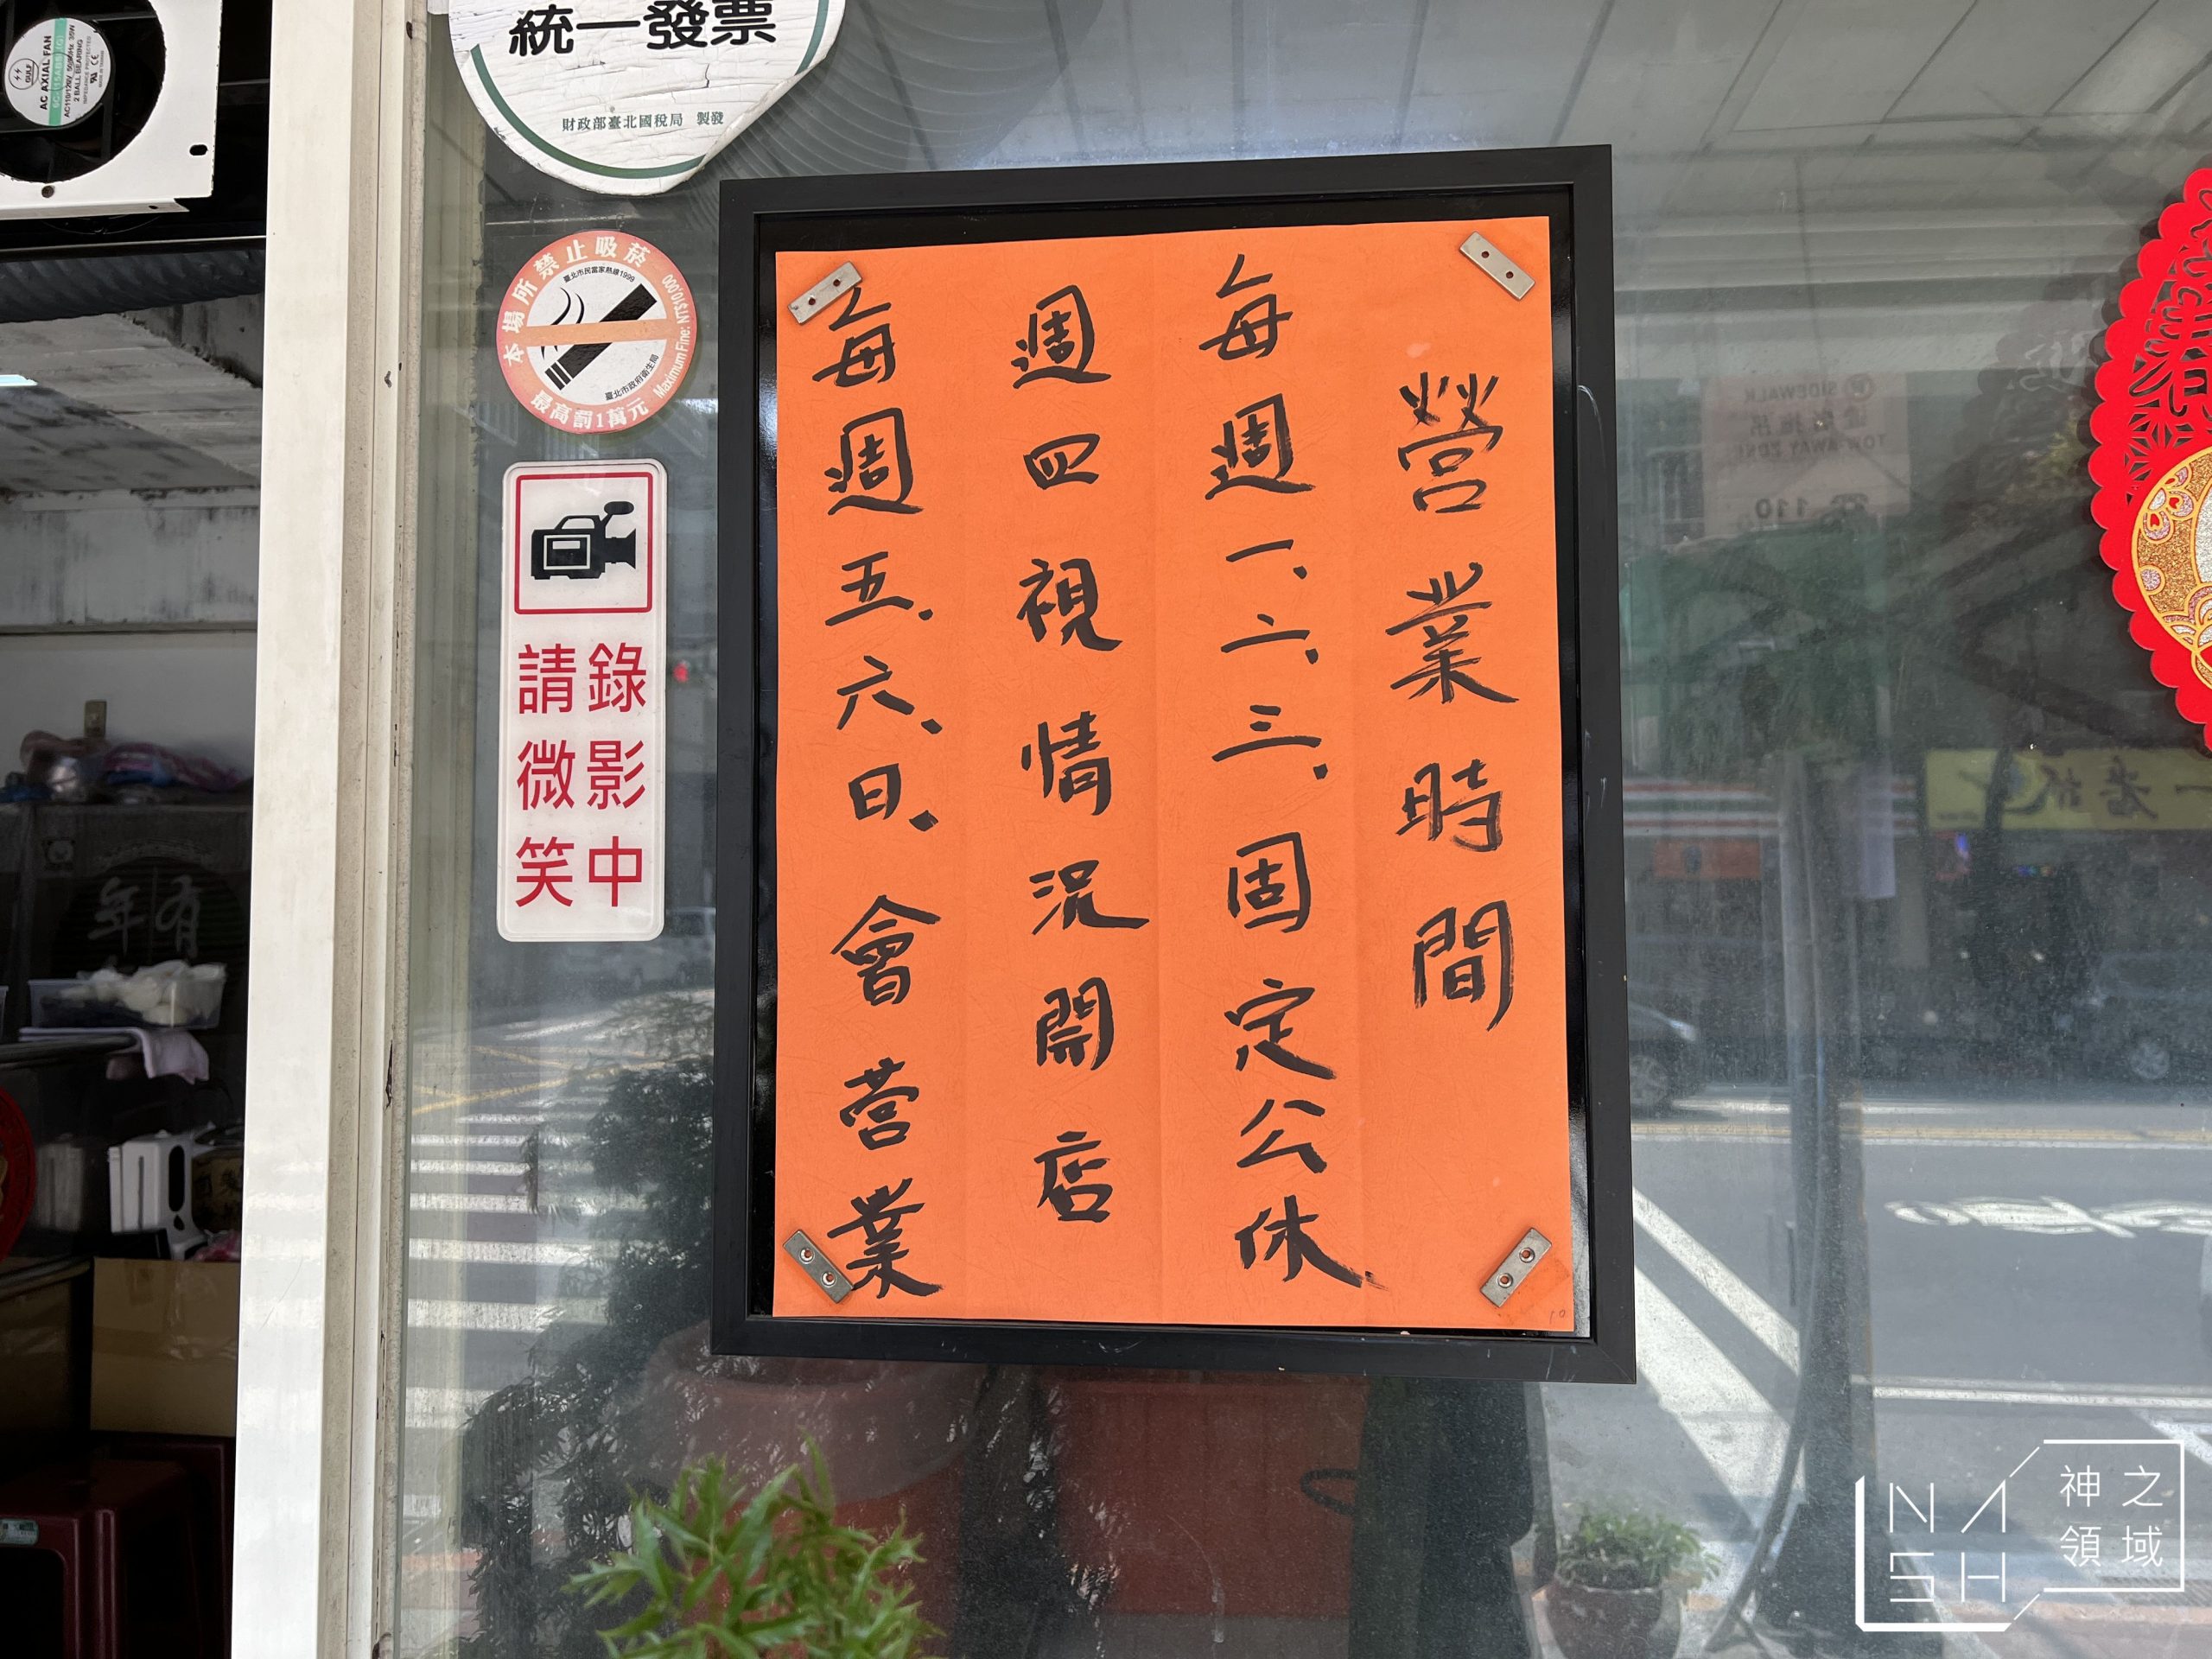 統一發票
財政部臺北國稅局 製發
AC AXIAL FAN
2 BALL BEARING
本場所禁止吸菸
臺北市民當家熱線1999
臺北市政府衛生局
最高罰1萬元
Maximum Fine: NT$10,000
錄影中
請微笑
營業時間
每週一、二、三、固定公休
週四視情況開店
每週五、六、日、會營業
春
NASH
神之領域